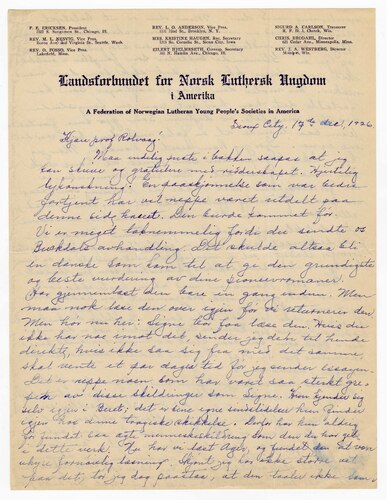 P. E. ERICKSEN, President
REV. M. L. NESVIG, Vice Pres.
REV. O. FOSSO, Vice Pres.
Lakefield, Minn.
REV. L. O. ANDERSON, Vice Pres.
Brooklyn, N. Y.
MRS. KRISTINE HAUGEN, Rec. Secretary
EILERT HJELMSETH, Corresp. Secretary
SIGURD A. CARLSON, Treasurer
REV. J. A. WESTBERG, Director
Landsforbundet for Norsk Luthersk Ungdom
i Amerika
A Federation of Norwegian Lutheran Young People's Societies in America
Sioux City, 17th dec, 1926
Kjære prof Rølvaag!
Maa endelig saapas at jeg
kan skrive og gratulere med ridderskapet. Hjertelig
lykønskning! En paaskjønnelse som var bedre
fortjent har vel neppe været utdelt paa
denne side havet. Den burde kommet før.
Vi er meget taknemmelig fordi du sendte os
avhandling. Det skulde altsaa bli
en danske som kom til at ge den grundigste
og beste vurdering av dine pioneerromaner.
Har gjennemlæst den bare en gang endnu. Men
maa nok læse den over igjen før vi returnerer den
Men hør nu her: Signe bør faa læse den. Hvis du
ikke har noe imot det, sender jeg den til hende
direkte, hvis ikke saa sig fra med det samme,
skal vente et par dages tid før jeg sender
Det er neppe noen som har været saa sterkt gre-
pen av disse skildringer som Signe. Hun kjender sig
selv igjen i Beret, det er hine egne hun finder
igjen hos denne tragiske skikkelse. Derfor har hun aldrig
fundet saa egte menneskeskildring som den du har git
i dette verk. Nu har vi læst Ager, og fundet den at være
uhyre fornøielig læsning. Skjønt jeg har ikke større vet
paa det, tør jeg dog paastaa, at den boken ikke kan